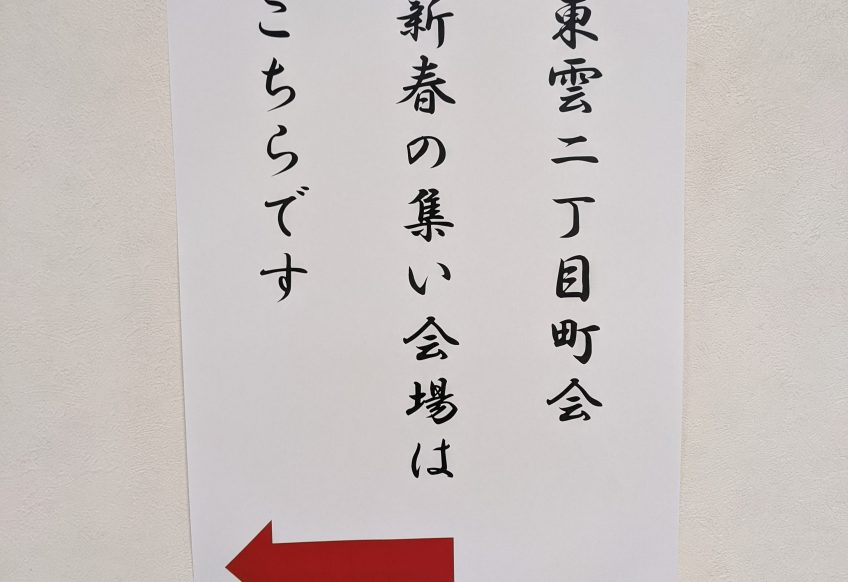 東雲二丁目町会
新春の集い会場は
こちらです